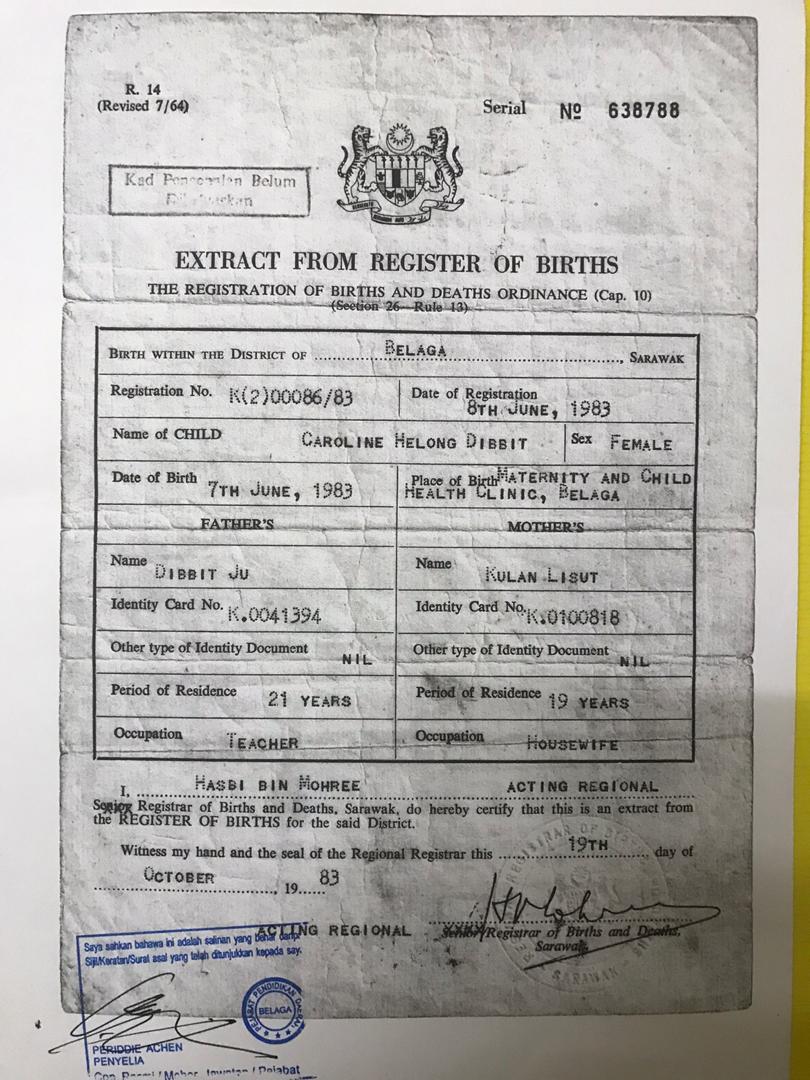 R. 14
(Revised 7/64)
Serial Nº 638788
Kad Pengenalan Belum
Dikeluarkan
EXTRACT FROM REGISTER OF BIRTHS
THE REGISTRATION OF BIRTHS AND DEATHS ORDINANCE (Cap. 10)
(Section 26—Rule 13)
BIRTH WITHIN THE DISTRICT OF BELAGA, SARAWAK
Registration No. K(2)00086/83
Date of Registration
8TH JUNE, 1983
Name of CHILD CAROLINE HELONG DIBBIT Sex FEMALE
Date of Birth 7TH JUNE, 1983
Place of Birth MATERNITY AND CHILD
HEALTH CLINIC, BELAGA
FATHER'S MOTHER'S
Name DIBBIT JU
Name KULAN LISUT
Identity Card No. K.0041394
Identity Card No. K.0100818
Other type of Identity Document NIL
Other type of Identity Document NIL
Period of Residence 21 YEARS
Period of Residence 19 YEARS
Occupation TEACHER
Occupation HOUSEWIFE
I, HASBI BIN MOHREE ACTING REGIONAL
Senior Registrar of Births and Deaths, Sarawak, do hereby certify that this is an extract from
the REGISTER OF BIRTHS for the said District.
Witness my hand and the seal of the Regional Registrar this 19TH day of
OCTOBER, 1983
ACTING REGIONAL Senior/Registrar of Births and Deaths,
Sarawak.
Saya sahkan bahawa ini adalah salinan yang benar daripada
Sijil/Keratan/Surat asal yang telah ditunjukkan kepada say.
PEJABAT PENDIDIKAN DAERAH
BELAGA
PERIDDIE ACHEN
PENYELIA
Cop Rasmi / Mohor Jawatan / Pejabat